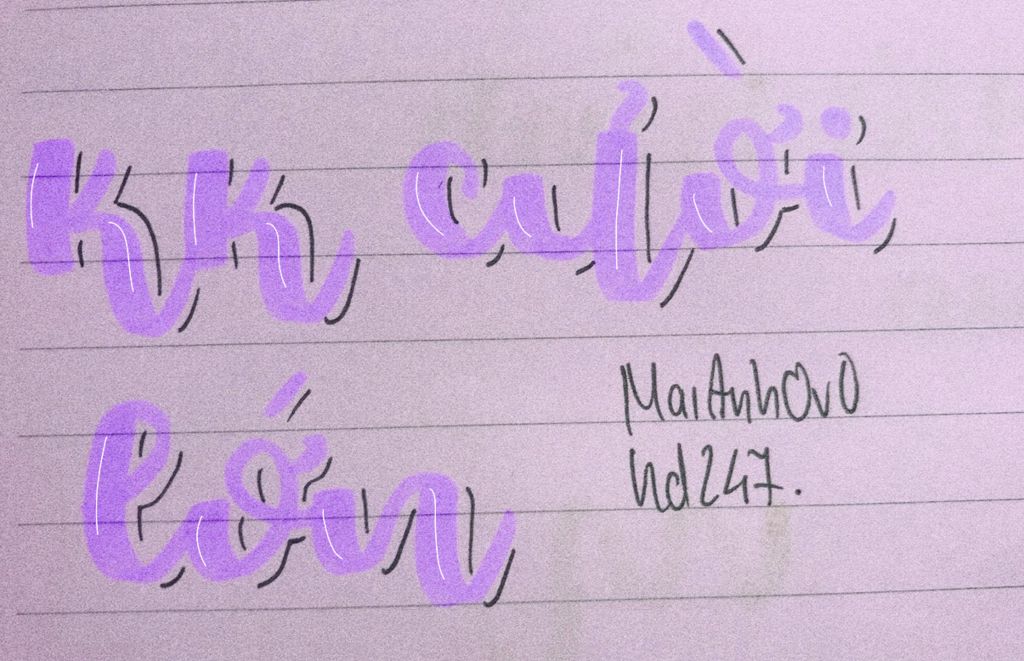 KK cười
lớn
MaiAnhOvO
hd247.